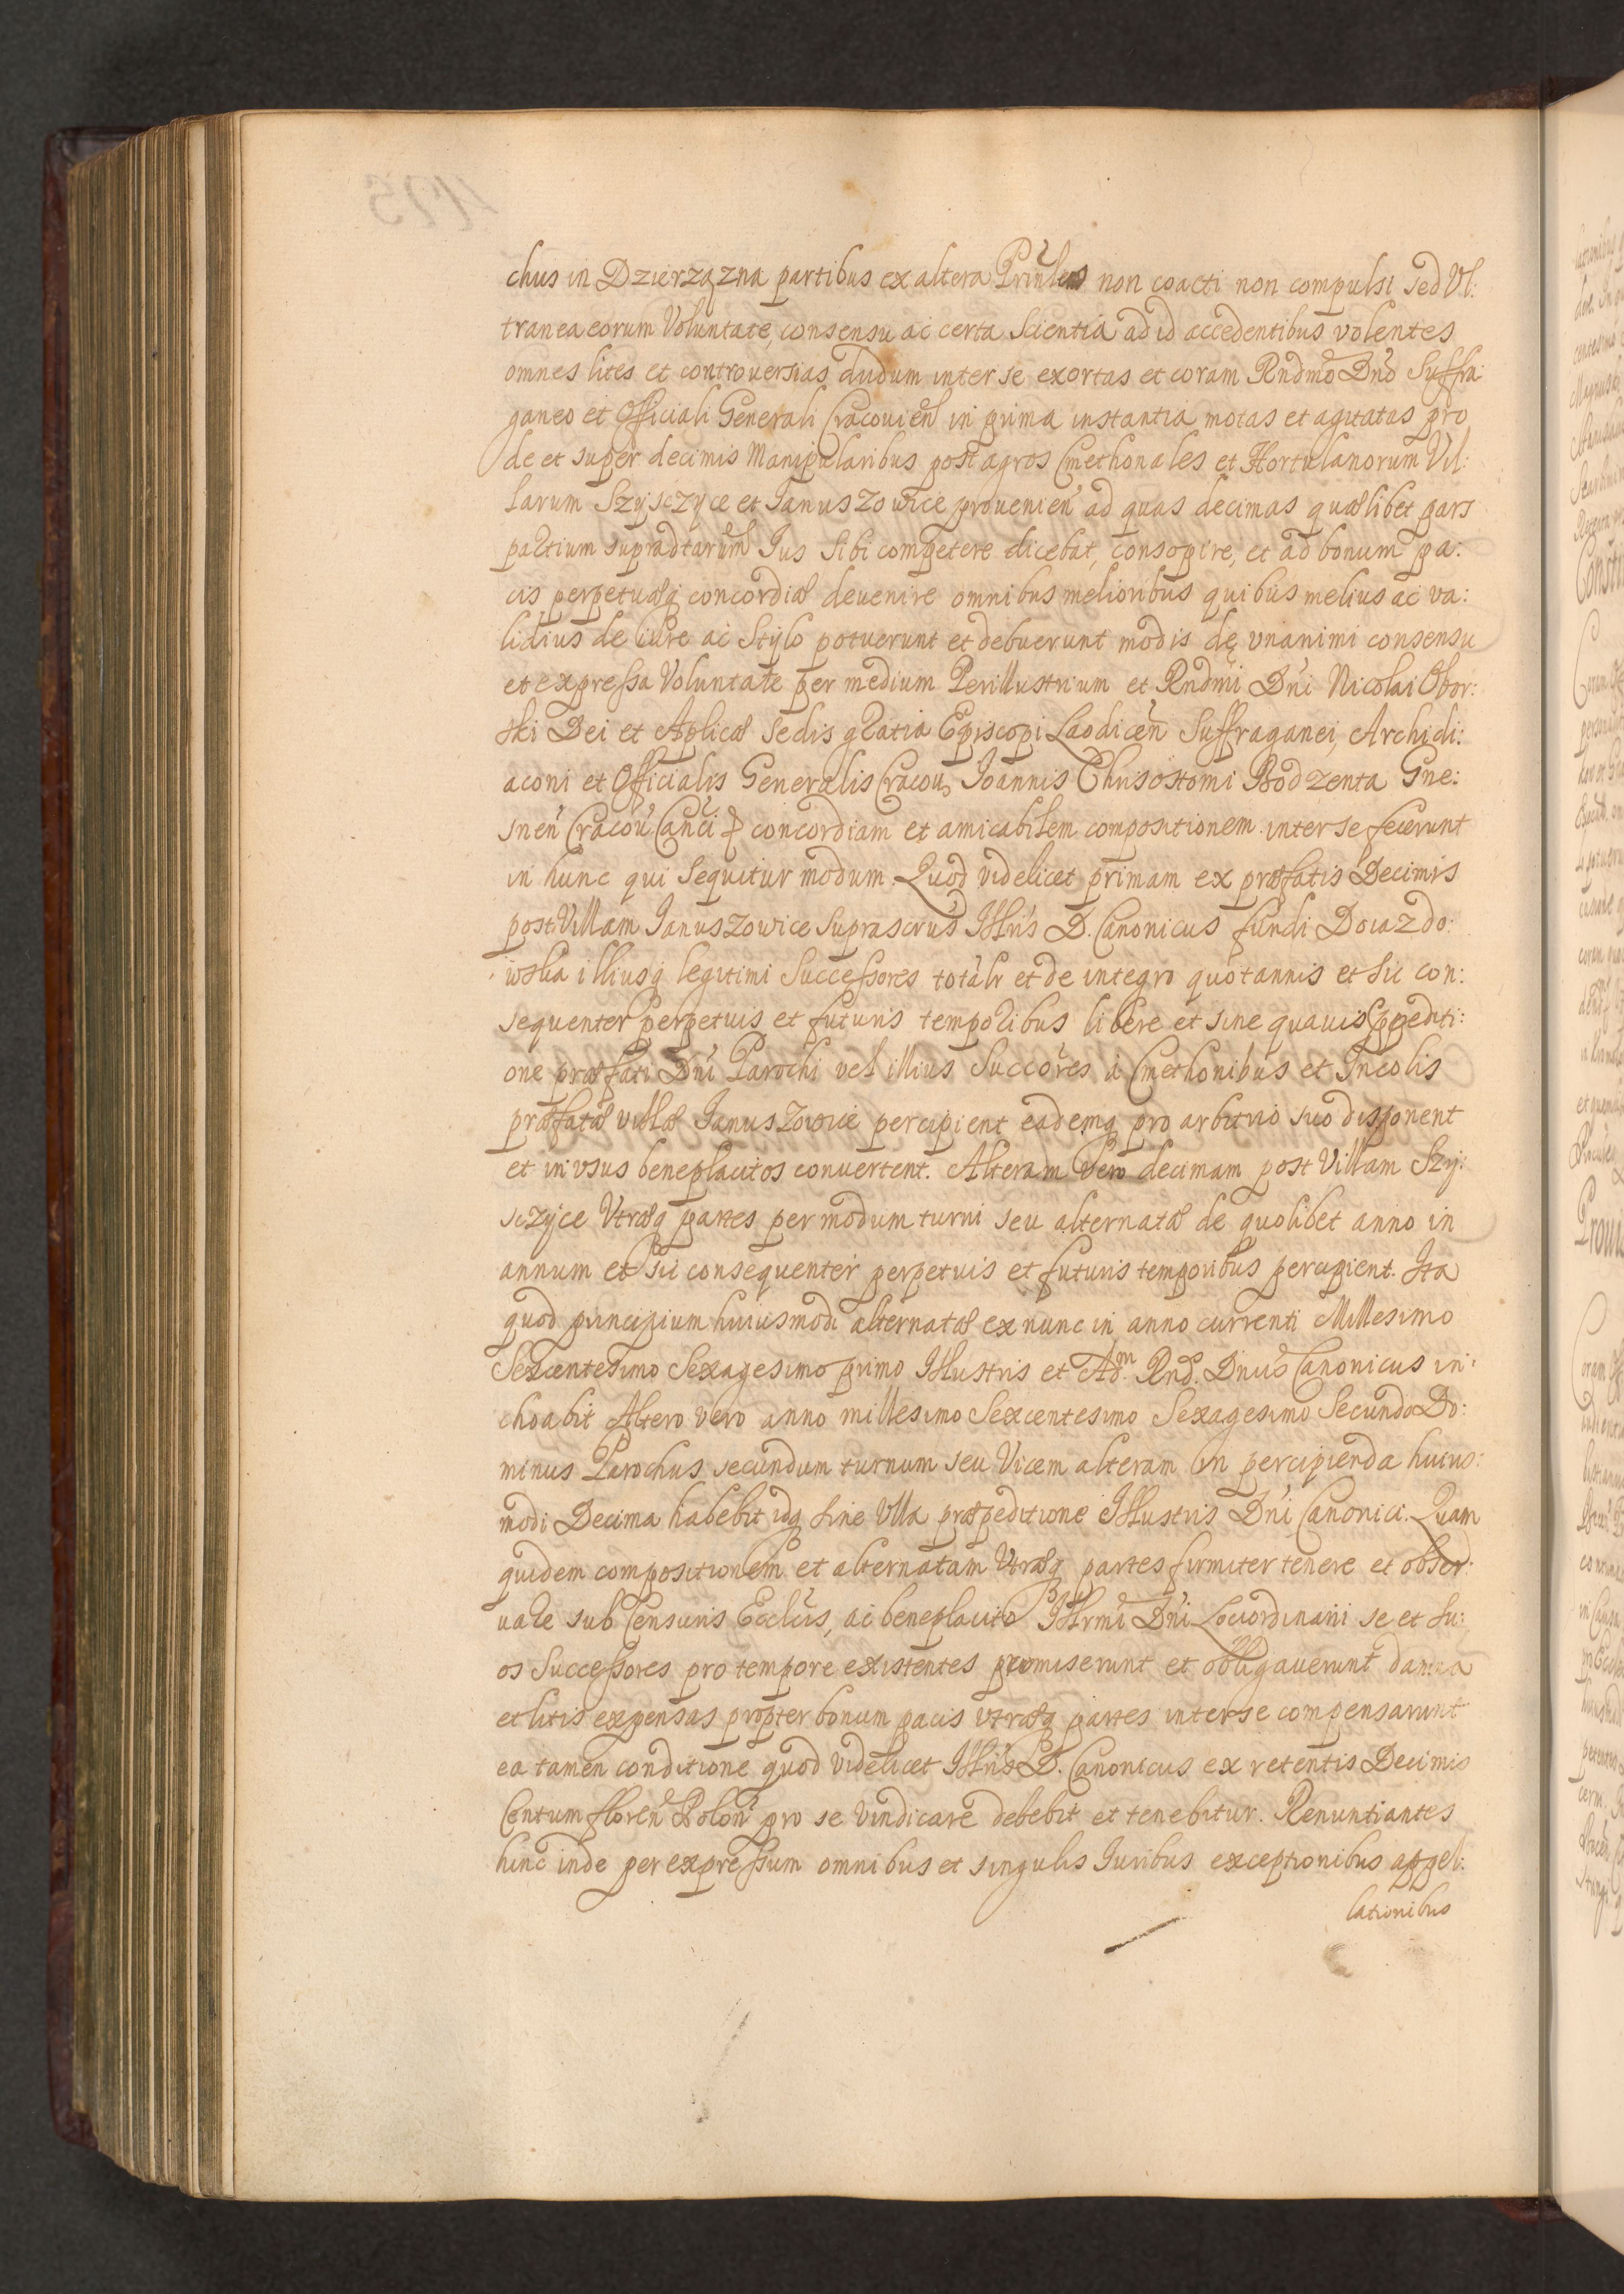 chus in Dzierzązna partibus ex altera Prin̄les non coacti non compulsi sed Vl:
tranea eorum Voluntate, consensu ac certa Scientia ad id accedentibus volentes
omnes lites et controversias dudum inter se exortas et coram Rndmo Dno Suffra
ganeo et Officiali Generali Cracouien̄ in prima instantia motas et agitatas pro
de et super decimis Manipularibus post agros Cmethonales et Hortulanorum Vil:
larum Szyszyce et Januszowice prouenien̄ ad quas decimas quælibet pars
partium supradtarum Jus Sibi competere dicebat, consopire, et ad bonum pa:
cis perpetuæq concordiæ devenire omnibus melioribus quibus melius ac va:
lidius de iure ac Stylo potuerunt et debuerunt modis de vnanimi consensu
et expressa Voluntate per medium Perillustrium et Rndmi Dni Nicolai Obor:
ski Dei et Aplicæ Sedis gratia Episcopi Laodicen̄ Suffraganei, Archidi:
aconi et Officialis Generalis Cracou, Joannis Chrisostomi Bodzenta Gne:
snen̄ Cracou Canci concordiam et amicabilem compositionem inter se fecerunt
in hunc qui Sequitur modum. Quod videlicet primam ex præfatis Decimis
post Villam Januszowice Suprascrus Illris D. Canonicus fundi Doiazdo:
wska illiusq legitimi Successores totalr et de integro quotannis et sic con:
sequenter perpetuis et futuris temporibus libere et sine quauis ppediti:
one præfati Dni Parochi vel illius Succores à Cmethonibus et Incolis
præfatæ villæ Januszowice percipient eademq pro arbitrio suo disponent
et in vsus beneplacitos convertent. Alteram Vero decimam post Villam Szy:
sczyce Vtræq partes per modum turni seu alternatæ de quolibet anno in
annum et sic consequenter perpetuis et futuris temporibus percipient. Ita
quod principium huiusmodi alternatæ ex nunc in anno currenti Millesimo
Sexcentesimo Sexagesimo primo Illustris et Adm. Rnd. Dnus Canonicus in:
choabit Altero vero anno millesimo Sexcentesimo Sexagesimo Secundo Do:
minus Parochus secundum turnum seu Vicem alteram in percipienda huius:
modi Decima habebit idq sine Vlla præpeditione Illustris Dni Canonici. Quam
quidem compositionem et alternatam Vtræq partes firmiter tenere et obser:
uare sub Censuris Ecclcis, ac beneplacito Illrmi Dni Lociordinarii se et su:
os Successores pro tempore existentes promiserunt et obligauerunt damna
et litis expensas propter bonum pacis vtræq partes inter se compensarunt
ea tamen conditione quod videlicet Illris D. Canonicus ex retentis Decimis
Centum floren̄ Polon̄ pro se vindicare debebit et tenebitur. Renuntiantes
hinc inde per expressum omnibus et singulis Iuribus exceptionibus appel:
lationibus